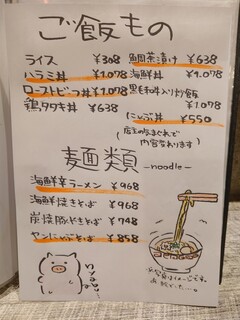 ご飯もの
ライス ¥308
ハラミ丼 ¥1.078
ローストビーフ丼 ¥1.078
鶏タタキ丼 ¥638
鯛茶漬け ¥638
海鮮丼 ¥1.078
黒毛和牛入り炒飯
¥1.078
にゃぶ丼 ¥550
(店主の気まぐれで
内容変わります)
麺類 -noodle-
海鮮辛ラーメン ¥968
海鮮焼きそば ¥968
炭焼豚バラそば ¥748
ヤンにゃぶそば ¥858